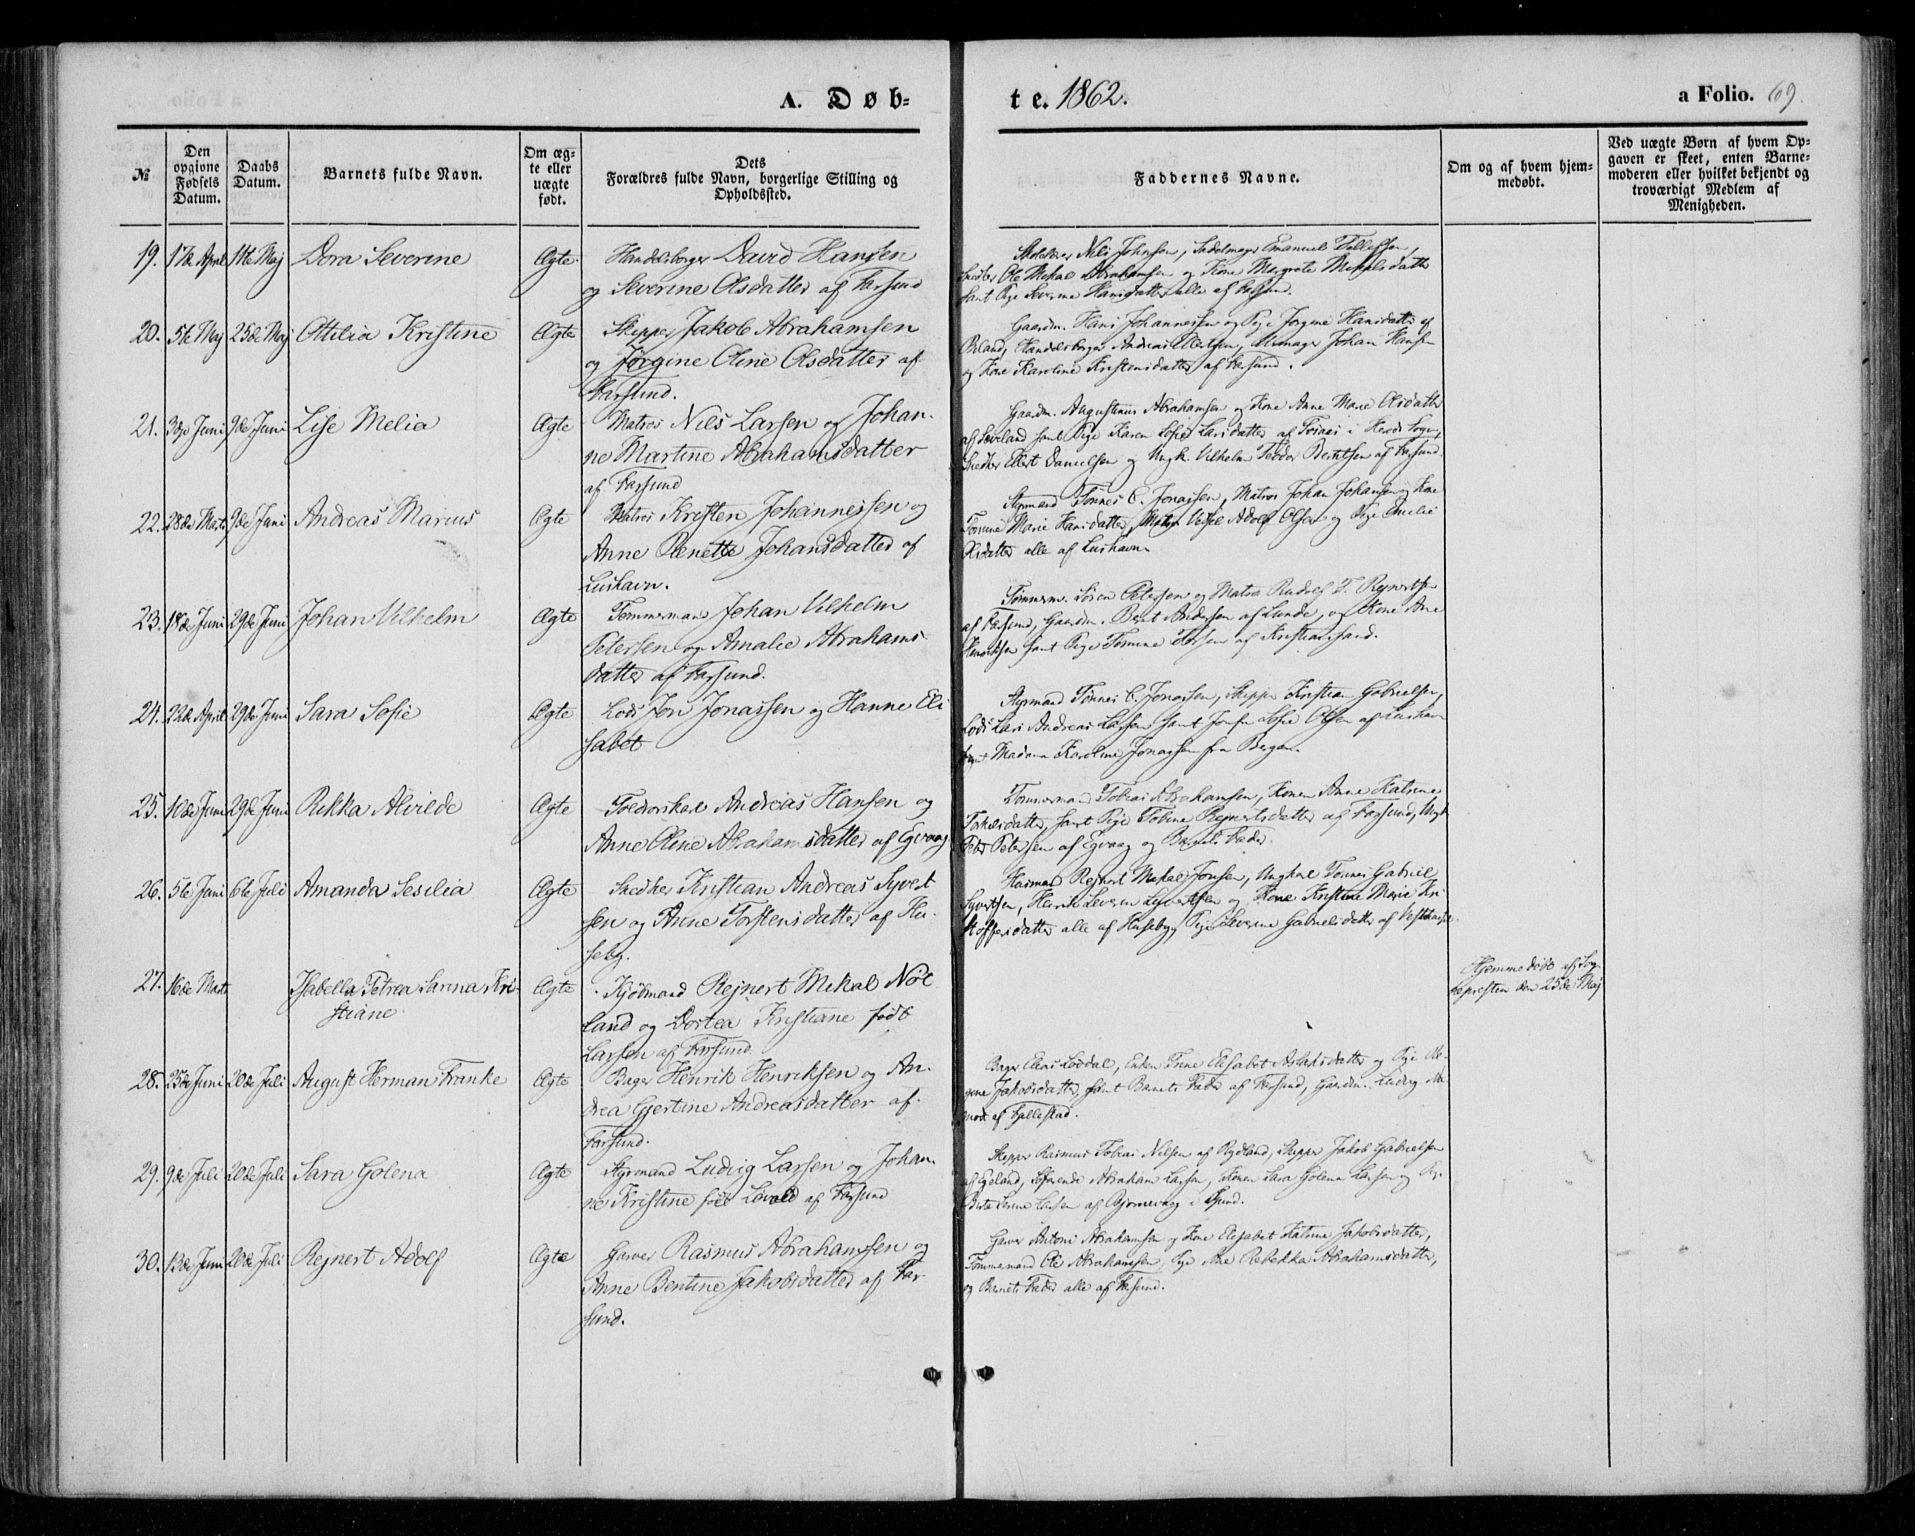 A. Døb-
te. 1862.
a Folio. 69.
№
Den opgivne Fødsels Datum.
Daabs Datum.
Barnets fulde Navn.
Om ægte eller uægte født.
Dets Forældres fulde Navn, borgerlige Stilling og Opholdssted.
Faddernes Navne.
Om og af hvem hjemmedøbt.
Ved uægte Børn af hvem Opgaven er skeet, enten Barnemoderen eller hvilket bekjendt og troværdigt Medlem af Menigheden.
19. 17de April 11te Maj Dora Severine Ægte. Handelsborger David Hansen
og Severine Olsdatter af Farsund
Nils Johnsen, Sadelmager Emanuel Tellefsen,
Snedker Ole Mekal Abrahamsen og Kone Margrete Mekkelsdatter
samt Pige Severine Hansdatter alle af Farsund.
20. 5te Maj 25de Maj Ottilia Kristine Ægte Skipper Jakob Abrahamsen
og Jørgine Oline Olsdatter af
Farsund.
Gaardm. Hans Johannessen og Pige Jørgine Hansdatter af
Handelsborger Andreas Johan Hansen
og Kone Karoline Kristensdatter af Farsund.
21. 3dje Juni 9de Juni Lise Melia Ægte Matros Nils Larsen og Johan-
ne Martine Abrahamsdatter
af Farsund
Gaardm. Augustinus Abrahamsen og Kone Anne Marie Olsdatter
samt Pige Karen Sofie Larsdatter af i Sogn,
Snedker Ellert Danielsen og Ungk. Vilhelm Teodor Berntsen af Farsund.
22. 28de Marts 9de Juni Andreas Marius Ægte Matros Kristen Johannessen og
Anne Renette Johansdatter af
Lushavn.
Styrmand Tønnes C. Jonassen, Matros Johan Johansen og Kone
Tomine Marie Hansdatter, Adolf Olsen og Pige Emilie
Olsdatter alle af Lushavn.
23. 18de Juni 29de Juni Johan Vilhelm Ægte Tømmermand Johan Vilhelm
Petersen og Amalie Abrahams-
datter af Farsund.
Tømmerm. Søren Petersen og Matros Rudolf T. Rejnertsen
af Farsund, Gaardm. Bernt Andersen af Lunde, og Kone Ane
Henriksen samt Pige Tomine af Kristianssand.
24. 22de April 29de Juni Sara Sofie Ægte Lods Jon Jonassen og Hanne Eli-
sabet
Styrmand Tønnes C. Jonassen, Skipper Kristian Gabrielsen,
Lods Lars Andreas Larsen samt Sofie Olsen af Lushavn
samt Madam Karoline Jonassen fra Bergen.
25. 10de Juni 29de Juni Rikka Alvilde Ægte Toldorskarl Andreas Hansen og
Anne Oline Abrahamsdatter af Egvaag
Tømmermand Tobias Abrahamsen, Konen Anne Katrine
samt Pige Tobine Rejnertsdatter af Farsund, Ungk.
Peder Petersen af Egvaag og Barnets Fader.
26. 5te Juni 6te Juli Amanda Sesilia Ægte Snedker Kristian Andreas Syvert-
sen og Anne Torstensdatter af Hu-
seby.
Husmand Rejnert Mekal Jonsen, Ungkarl Tønnes Gabriel
Syvertsen, Henrik Severin Syvertsen og Kone Kristine Marie Kri-
stoffersdatter alle af Huseby, Pige Severine Gabrielsdatter af
27. 16de Marts Isabella Petrea Sarina Kri-
stiane Ægte Kjøbmand Rejnert Mekal Nöt-
land og Dortea Kristiane født
Larsen af Farsund.
Hjemmedøbt af Sog-
nepresten den 25de Maj
28. 25de Juni 20de Juli August Herman Franke Ægte Bager Henrik Henriksen og An-
drea Gjertine Andreasdatter af
Farsund.
Bager Elias Enken Trine Elisabet Aslaksdatter og Pige Re-
gine Jakobsdatter, samt Barnets Fader af Farsund, Gaardm. Ludvig
af
29. 9de Juli 20de Juli Sara Golena Ægte Styrmand Ludvig Larsen og Johan-
ne Kristine født Lovald af Farsund
Skipper Rasmus Tobias Nilsen af Rydland, Skipper Jakob Gabrielsen
af Egeland, Søfarende Abraham Larsen, Konen Sara Golena Larsen og Pige
Berte Serine Larsen af i
30. 13de Juni 20de Juli Rejnert Adolf Ægte Garver Rasmus Abrahamsen og
Anne Bentine Jakobsdatter af Far-
sund.
Garver Antoni Abrahamsen og Kone Elisabet Katrine Jakobsdatter,
Tømmermand Ole Abrahamsen, Pige Ane Rebekka Abrahamsdatter,
og Barnets Fader alle af Farsund.